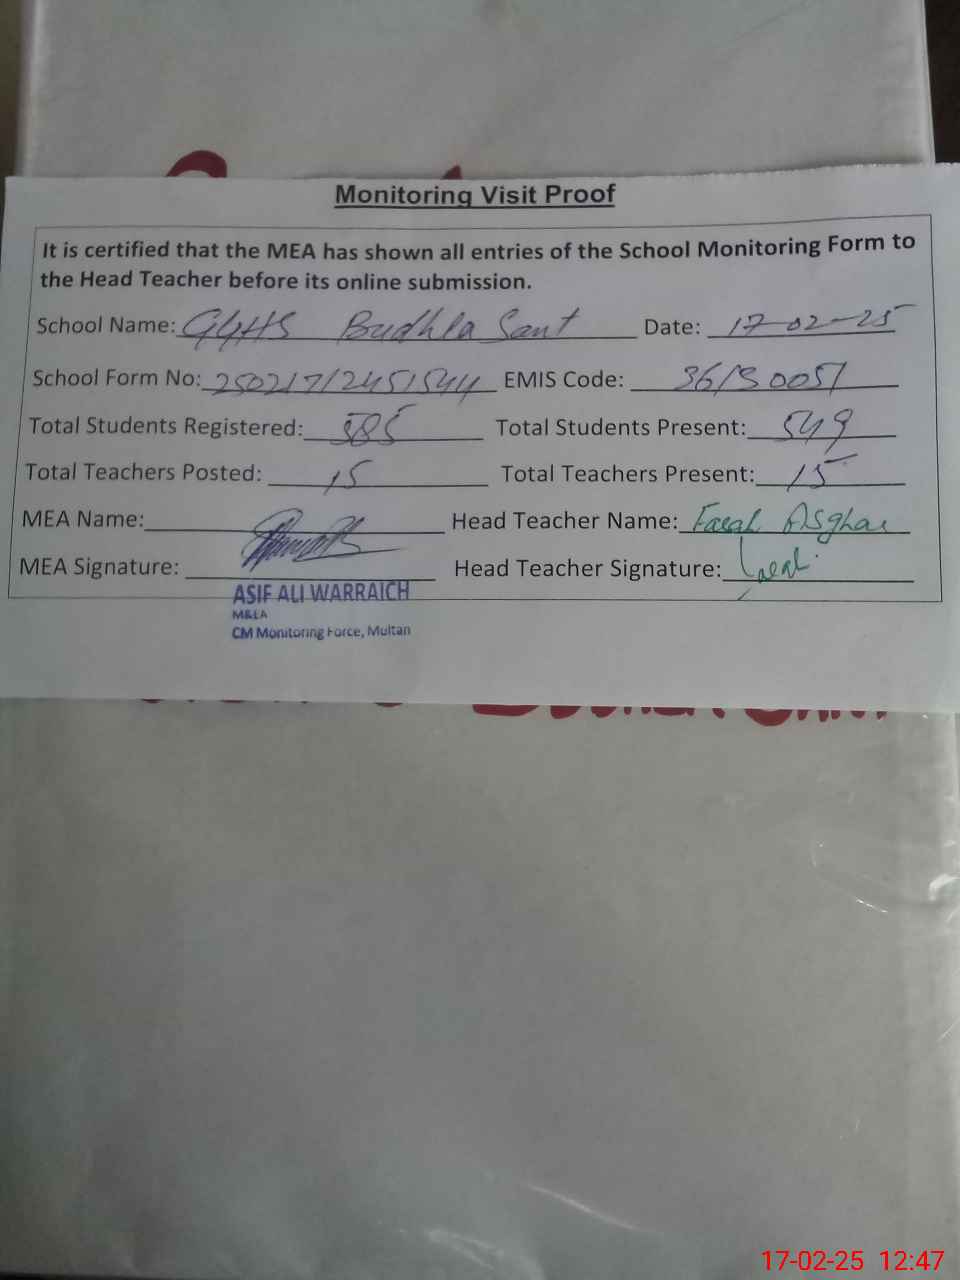 Monitoring Visit Proof
It is certified that the MEA has shown all entries of the School Monitoring Form to
the Head Teacher before its online submission.
School Name: GGHS Budhla Sant Date: 17-02-25
School Form No: 250217/2451544 EMIS Code: 36130051
Total Students Registered: 585 Total Students Present: 549
Total Teachers Posted: 15 Total Teachers Present: 15
MEA Name: Head Teacher Name: Asghar
MEA Signature: Head Teacher Signature:
ASIF ALI WARRAICH
M&EA
CM Monitoring Force, Multan
17-02-25 12:47